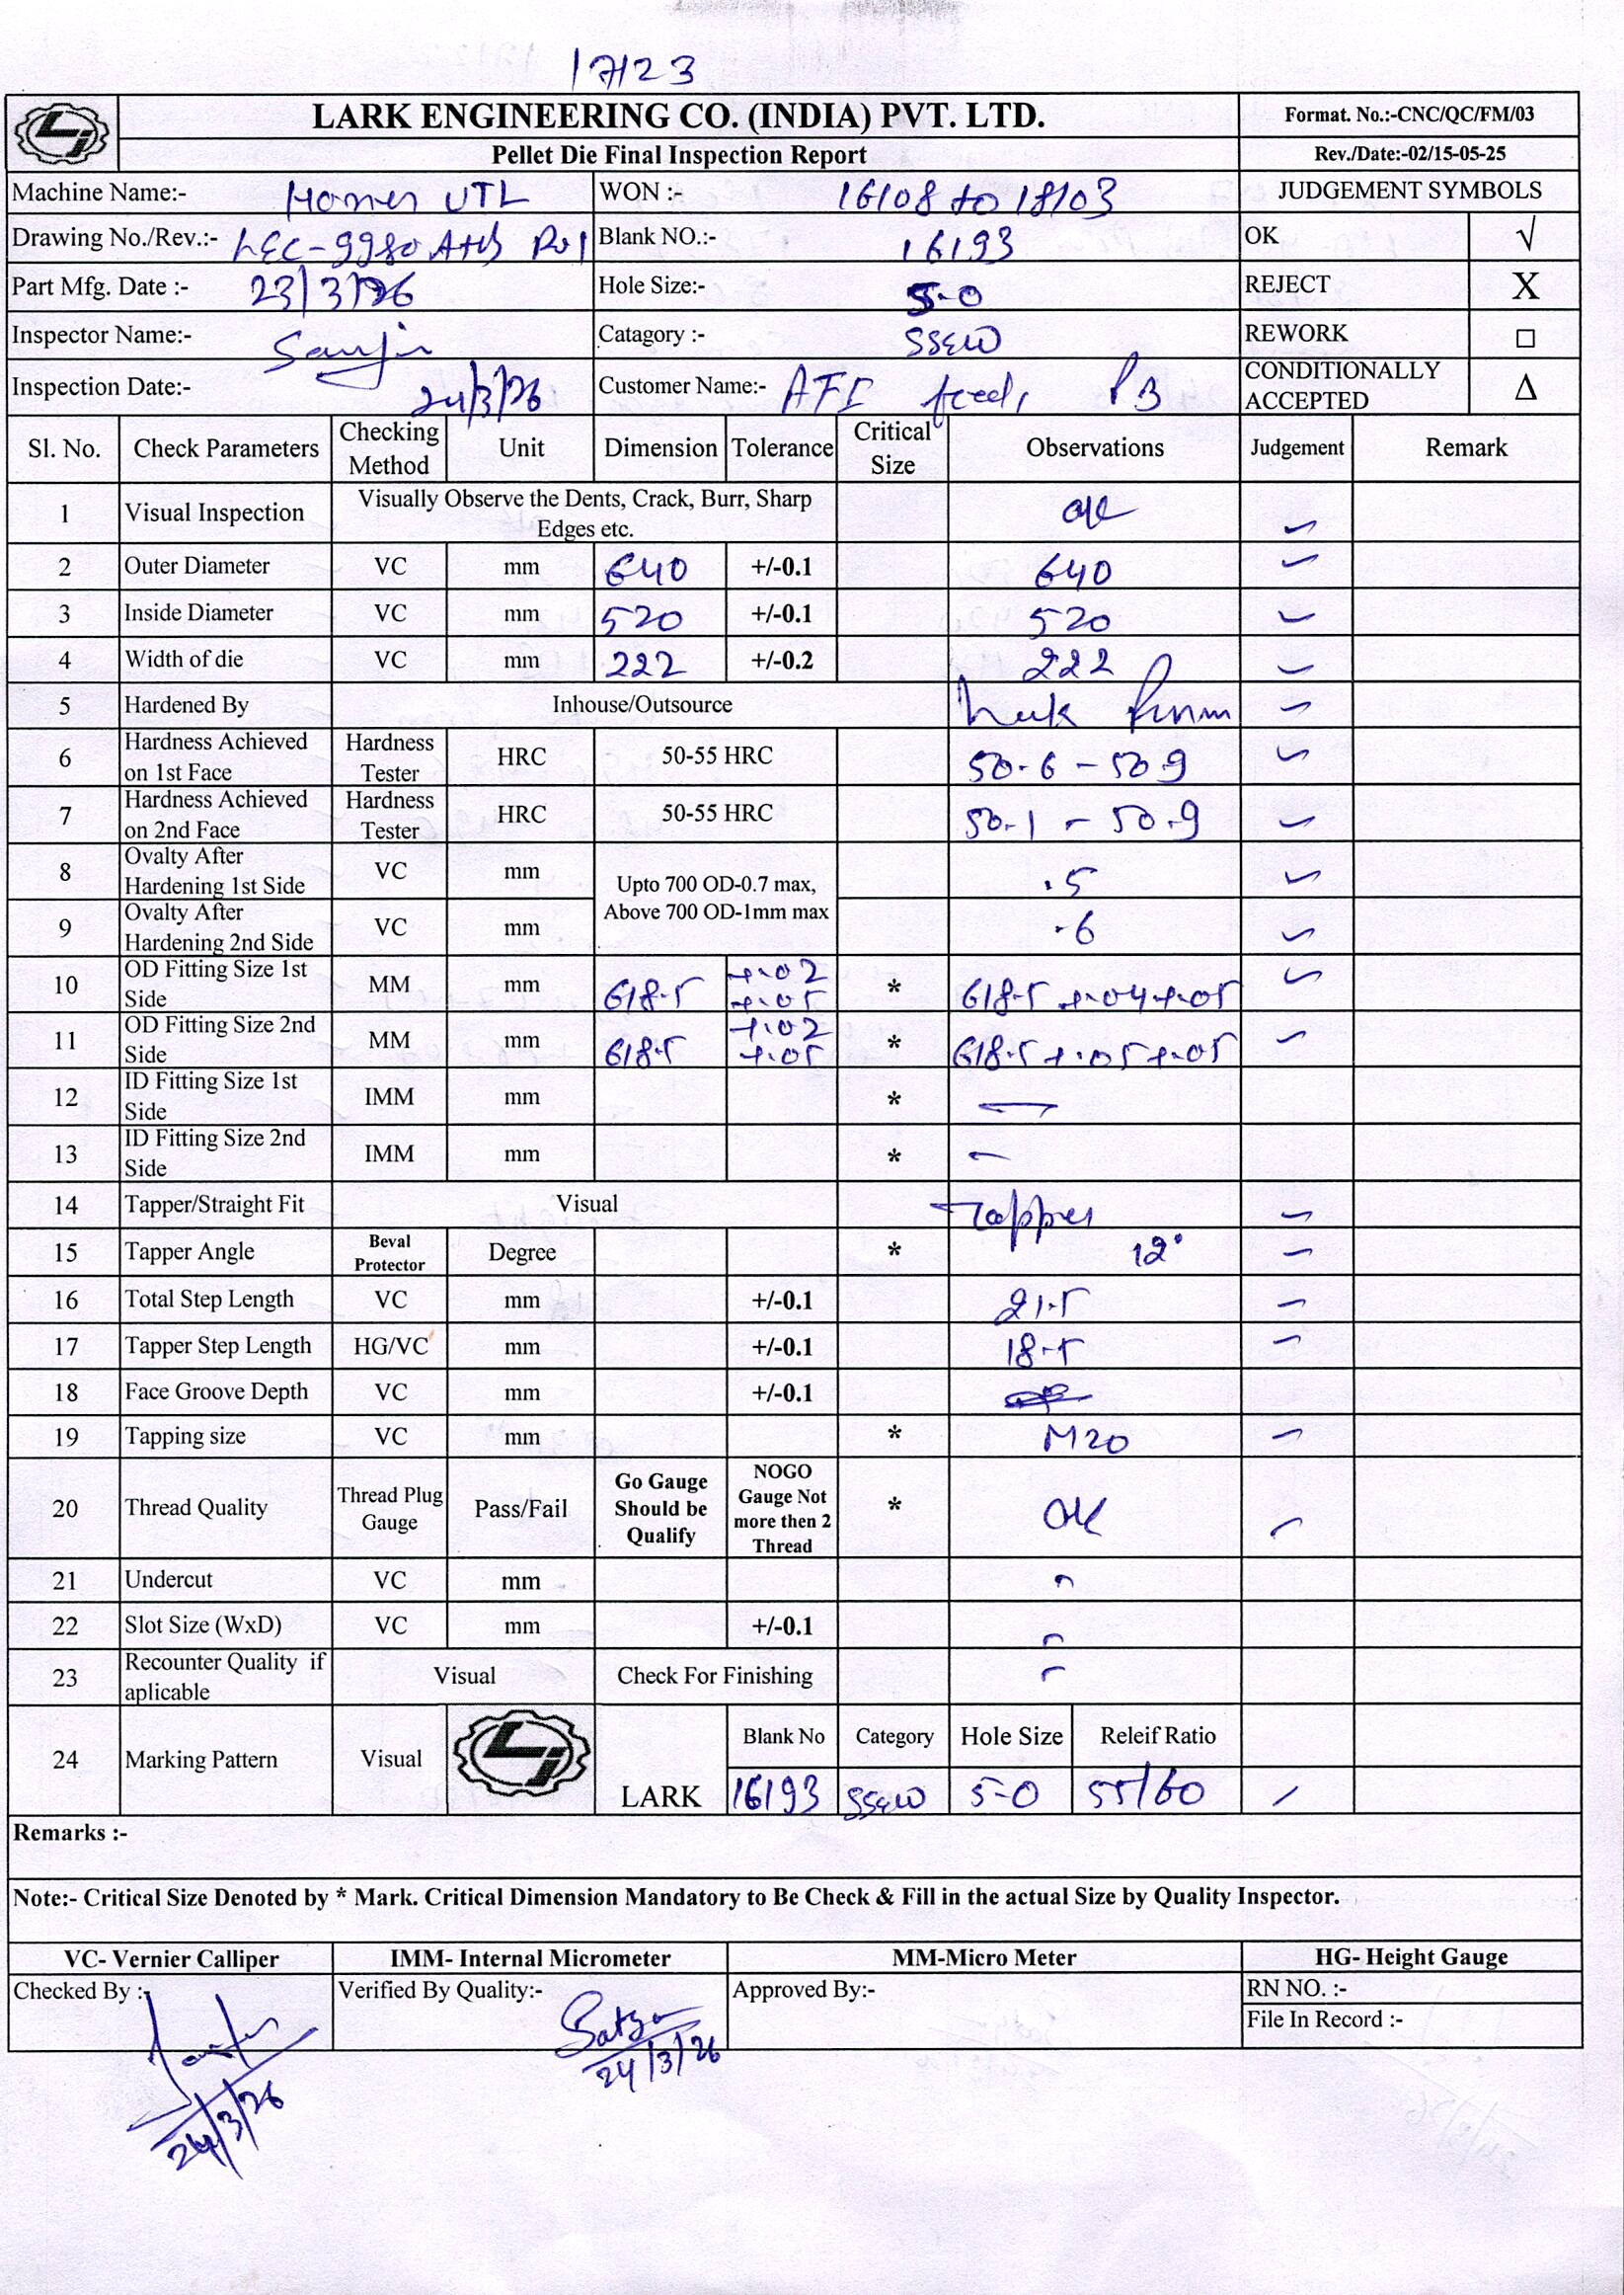 17123
LARK ENGINEERING CO. (INDIA) PVT. LTD.
Format. No.:-CNC/QC/FM/03
Pellet Die Final Inspection Report
Rev./Date:-02/15-05-25
Machine Name:- UTL WON :- 16108 to 18103 JUDGEMENT SYMBOLS
Drawing No./Rev.:- Blank NO.:- 16193 OK √
Part Mfg. Date :- 23/3/26 Hole Size:- 5-0 REJECT X
Inspector Name:- Catagory :- REWORK □
Inspection Date:- 24/3/26 Customer Name:- CONDITIONALLY ACCEPTED Δ
Sl. No. Check Parameters Checking Method Unit Dimension Tolerance Critical Size Observations Judgement Remark
1 Visual Inspection Visually Observe the Dents, Crack, Burr, Sharp Edges etc. ok
2 Outer Diameter VC mm 640 +/-0.1 640
3 Inside Diameter VC mm 520 +/-0.1 520
4 Width of die VC mm 222 +/-0.2 222
5 Hardened By Inhouse/Outsource
6 Hardness Achieved on 1st Face Hardness Tester HRC 50-55 HRC 50.6 - 50.9
7 Hardness Achieved on 2nd Face Hardness Tester HRC 50-55 HRC 50.1 - 50.9
8 Ovalty After Hardening 1st Side VC mm Upto 700 OD-0.7 max, Above 700 OD-1mm max .5
9 Ovalty After Hardening 2nd Side VC mm .6
10 OD Fitting Size 1st Side MM mm 618.5 +.02 +.05 * 618.5 +.04+.05
11 OD Fitting Size 2nd Side MM mm 618.5 +.02 +.05 * 618.5+.05+.05
12 ID Fitting Size 1st Side IMM mm * -
13 ID Fitting Size 2nd Side IMM mm * -
14 Tapper/Straight Fit Visual Tapper
15 Tapper Angle Beval Protector Degree * 12°
16 Total Step Length VC mm +/-0.1 21.5
17 Tapper Step Length HG/VC mm +/-0.1 18.5
18 Face Groove Depth VC mm +/-0.1
19 Tapping size VC mm * M20
20 Thread Quality Thread Plug Gauge Pass/Fail Go Gauge Should be Qualify NOGO Gauge Not more then 2 Thread * OK
21 Undercut VC mm -
22 Slot Size (WxD) VC mm +/-0.1 -
23 Recounter Quality if aplicable Visual Check For Finishing -
24 Marking Pattern Visual LARK Blank No Category Hole Size Releif Ratio
16193 5-0 55/60
Remarks :-
Note:- Critical Size Denoted by * Mark. Critical Dimension Mandatory to Be Check & Fill in the actual Size by Quality Inspector.
VC- Vernier Calliper IMM- Internal Micrometer MM-Micro Meter HG- Height Gauge
Checked By :- Verified By Quality:- Approved By:- RN NO. :-
File In Record :-
24/3/26
24/3/26